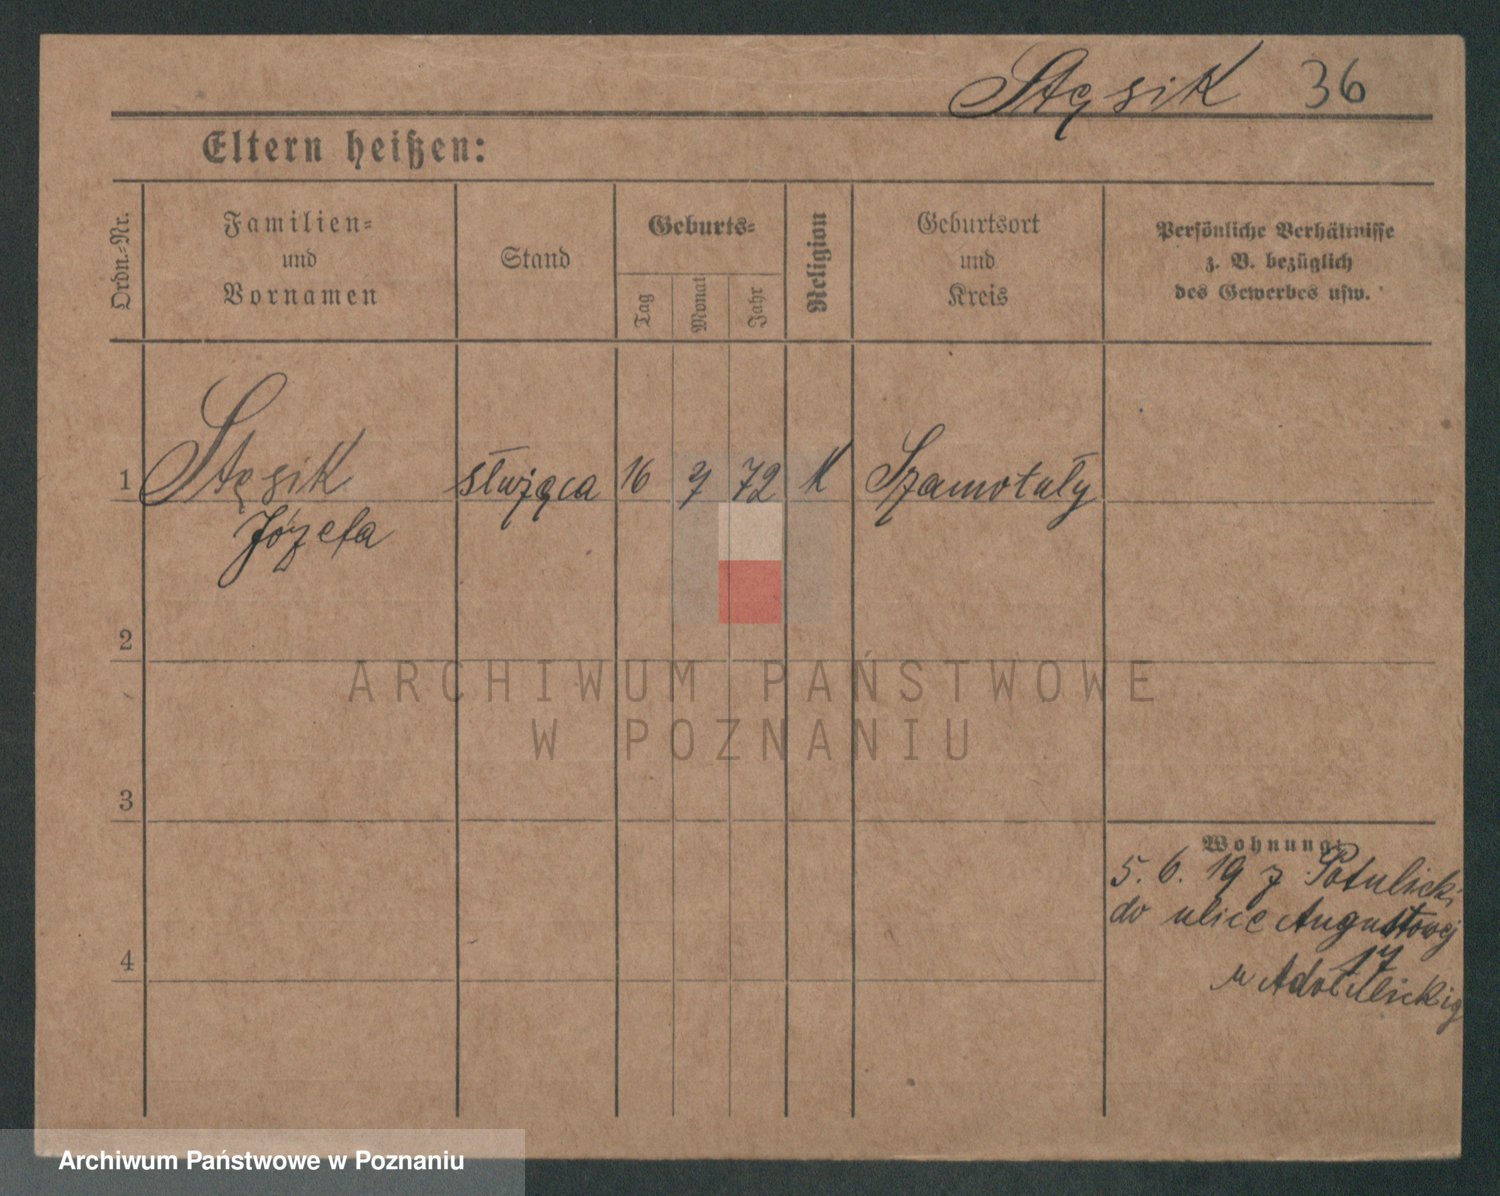 Stęsik 36
Eltern heißen:
Ordn.-Nr.
Familien-
und
Vornamen
Stand
Geburts-
Tag
Monat
Jahr
Religion
Geburtsort
und
Kreis
Persönliche Verhältnisse
z. B. bezüglich
des Gewerbes usw.
1 Stęsik służąca 16 72 K Szamotuły
Józefa
2
ARCHIWUM PAŃSTWOWE
W POZNANIU
3
Wohnung:
5. 6. 19 z Potulicki
do ulice Augustowej
17
4
u
Archiwum Państwowe w Poznaniu